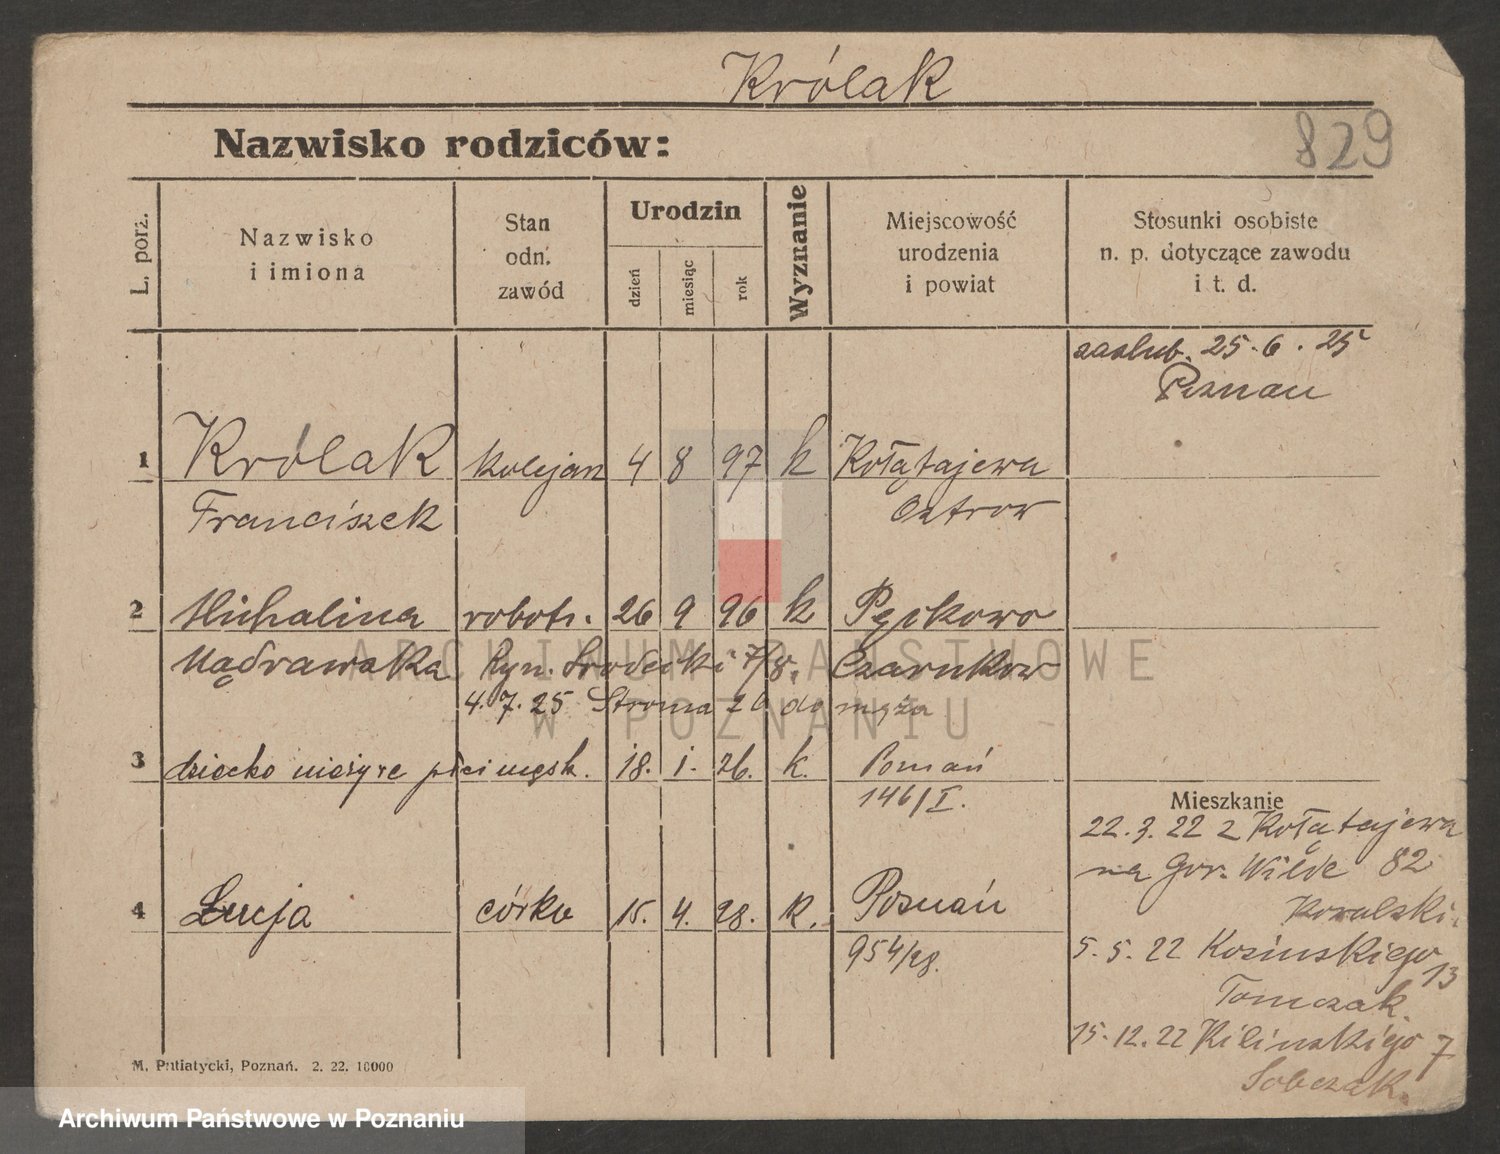 Królak
Nazwisko rodziców:
829
L. porz.
Nazwisko
i imiona
Stan
odn.
zawód
Urodzin
dzień
miesiąc
rok
Wyznanie
Miejscowość
urodzenia
i powiat
Stosunki osobiste
n. p. dotyczące zawodu
i t. d.
zaślub. 25.6.25
Poznań
1 Królak kolejarz 4 8 97 k Kołątajewa
Franciszek Ostrow
2 Michalina robotn. 26 9 96 k Pęckowo
Mądrawska Ryn. Srodecki 7/8. Czarnkow
4.7.25 Stroma 20 do męża
3 dziecko nieżywe płci męsk. 18. 1. 26. k. Poznań
146/I.
Mieszkanie
22.3.22 z Kołątajewa
na Gor. Wilde 82
Kowalski.
4 Łucja córka 15. 4. 28. k. Poznań
954/28.
5.5.22 Kosinskiego 13
Tomczak.
15.12.22 Kilinskiego 7
Sobczak.
M. Putiatycki, Poznań. 2. 22. 10000
ARCHIWUM PAŃSTWOWE
W POZNANIU
Archiwum Państwowe w Poznaniu